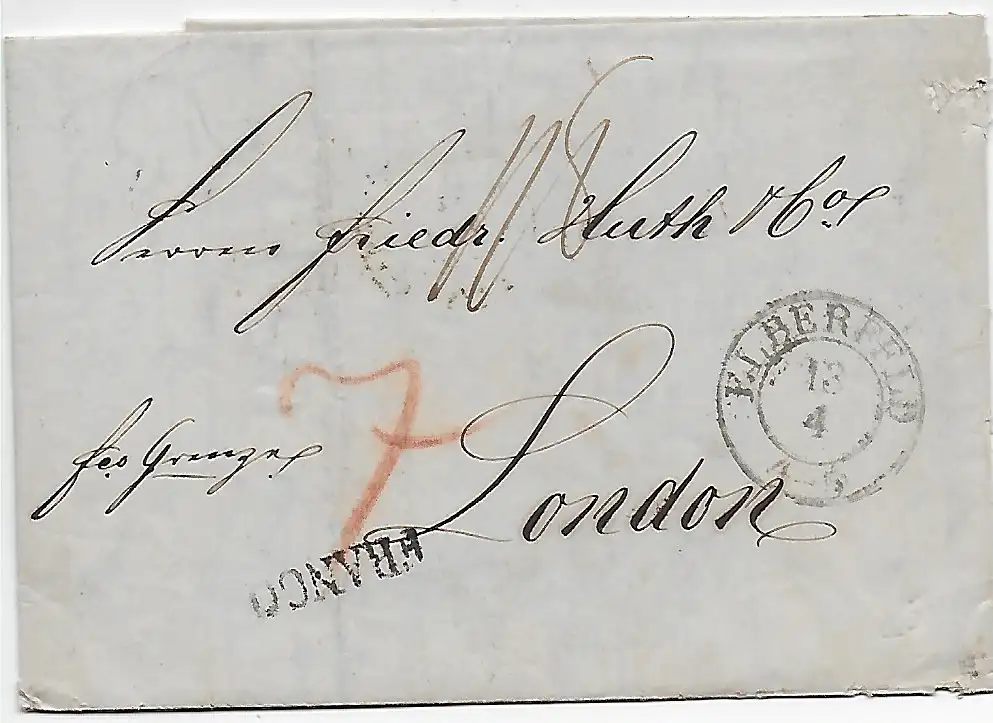 Herren Friedr. Huth & Co
ELBERFELD
13
4
7
fco Grenze
London
FRANCO